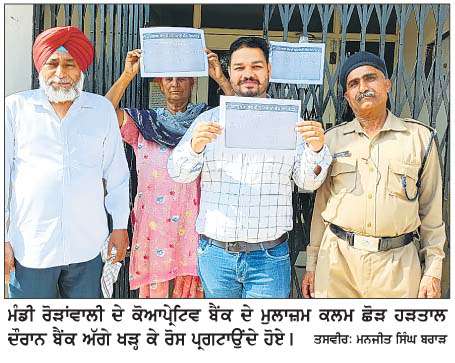 ਮੰਡੀ ਰੋੜਾਂਵਾਲੀ ਦੇ ਕੋਆਪ੍ਰੇਟਿਵ ਬੈਂਕ ਦੇ ਮੁਲਾਜ਼ਮ ਕਲਮ ਛੋੜ ਹੜਤਾਲ
ਦੌਰਾਨ ਬੈਂਕ ਅੱਗੇ ਖੜ੍ਹ ਕੇ ਰੋਸ ਪ੍ਰਗਟਾਉਂਦੇ ਹੋਏ। ਤਸਵੀਰ: ਮਨਜੀਤ ਸਿੰਘ ਬਰਾੜ